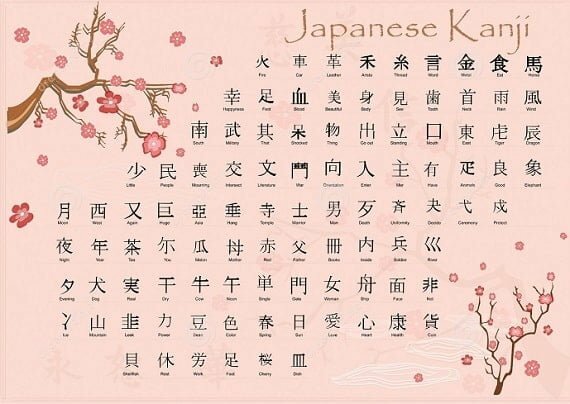 Japanese Kanji
火 車 革 禾 糸 言 金 食 馬
Fire Car Leather Thread Word Metal Eat Horse
幸 足 血 美 身 見 歯 首 雨 風
Happyness Foot Blood Beautiful Body See Tooth Neck Rain Wind
南 武 其 呆 物 出 立 口 東 虎 辰
South Military That Shocked Thing Go out Standing Mouth East Tiger Dragon
少 民 喪 交 文 鬥 向 入 主 有 疋 良 象
Little People Mourning Intersect Literature War Orientation Enter Have Animals Good Elephant
月 西 又 巨 亞 垂 寺 士 男 歹 斉 夬 弋 戍
Moon West Again Huge Asia Hang Temple Warrior Man Death Uniformly Decide Ceremony Protect
夜 年 茶 尓 瓜 母 赤 父 冊 内 兵 巛
Night Year Tea You Melon Mother Red Father Books Inside Soldier River
夕 犬 実 干 牛 午 単 門 女 舟 面 非
Evening Dog Real Dry Cow Noon Single Gate Woman Ship Face Not
冫 山 韭 力 豆 色 春 日 愛 心 康 貨
Ice Mountain Leek Power Bean Color Spring Sun Love Heart Health Coin
貝 休 労 足 桜 皿
Shellfish Rest Work Walk Cherry Dish